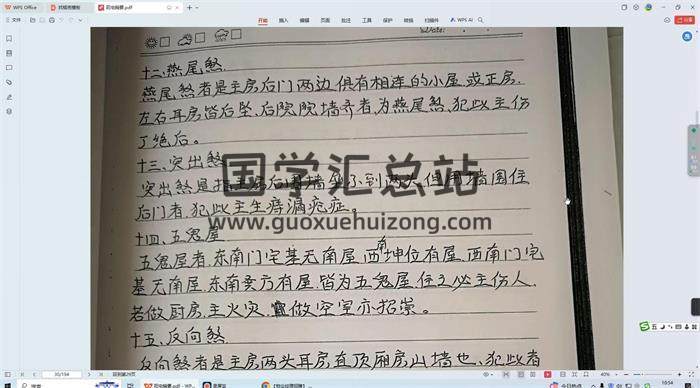 WPS Office
找稻壳模板
阳宅秘要.pdf
文件
开始 插入 编辑 页面 批注 保护 转换 扫描件 WPS AI
Date:
十二、燕尾煞
燕尾煞者是主房后门两边俱有相连的小屋或正房
左右耳房皆后坠,后院院墙齐者,为燕尾煞,犯此主伤
丁绝后。
十三、突出煞
突出煞是指主房后围墙 不到两头,但围墙围住
后门者,犯此主生痔漏疤症。
十四、五鬼屋
五鬼屋者,东南门宅基无南屋,西南坤位有屋,西南门宅
基无南屋,东南巽方有屋,皆为五鬼屋,住之必主伤人,
若做厨房,主火灾, 做空室亦招祟。
十五、反向煞
反向煞者是主房两头耳房直顶厢房山墙也、犯此者
国学汇总站
www.guoxuehuizong.com
30/194
回到第29页
40%
搜索
今日热点
18:54